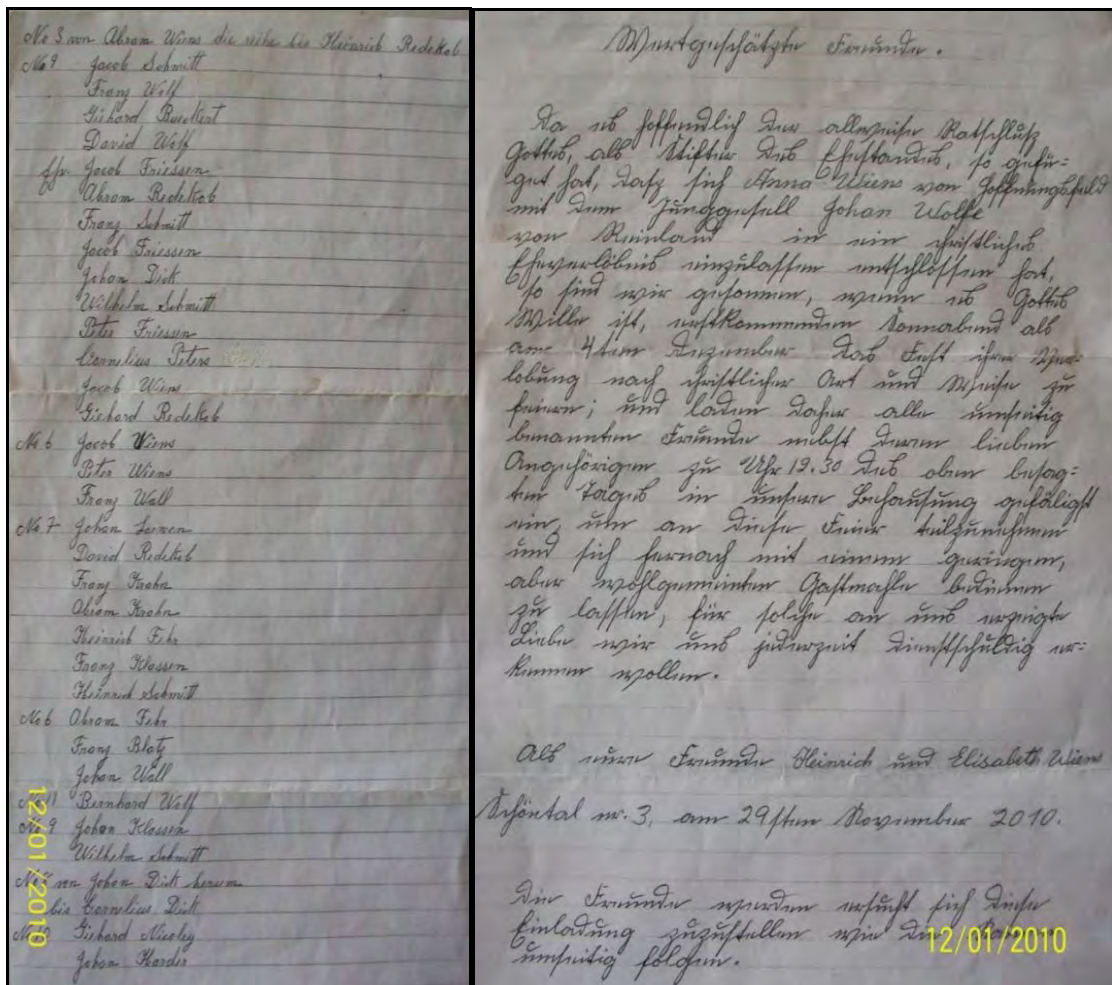 No 3 von Abram Wiens die reihe bis Heinrich Redekob
No 9 Jacob Schmitt
Franz Wolf
Gerhard Bueckert
David Wolf
Jacob Friessen
Abram Redekob
Franz Schmitt
Jacob Friessen
Johan Dick
Wilhelm Schmitt
Peter Friessen
Cornelius Peters
Jacob Wiens
Gerhard Redekob
No 6 Jacob Wiens
Peter Wiens
Franz Wall
No 7 Johan Loewen
David Redekob
Franz Krahn
Abram Krahn
Heinrich Fehr
Franz Klassen
Heinrich Schmitt
No 6 Abram Fehr
Franz Blatz
Johan Wall
No 11 Bernhard Wolf
No 9 Johan Klassen
Wilhelm Schmitt
von Johan Dick herum
bis Cornelius Dick
Gerhard Nicoley
Johan Harder
12/01/2010
Wertgeschätzte Freunde.
Da es hoffendlich der allweise Ratschlusz
Gottes, als Stifter des Ehestandes, so gefü=
get hat, dasz sich Anna Wiens von Hoffnungsfeld
mit dem Junggesell Johan Wolfe
von Reinland in ein christliches
Eheverlöbnis einzulassen entschlossen hat,
so sind wir gesonnen, wenn es Gottes
Wille ist, erstkommenden Sonnabend als
am 4ten Dezember das Fest ihrer Ver=
lobung nach christlicher Art und Weise zu
feiern; und laden daher alle umseitig
benannten Freunde nebst deren lieben
Angehörigen zu Uhr 12.30 des oben besag=
ten Tages in unsere Behausung gefäligst
ein, um an diese Feier teilzunehmen
und sich hernach mit einem geringen,
aber wohlgemeinten Gastmahle bedienen
zu lassen, für solche an uns erzeigte
Liebe wir uns jederzeit dienstschuldig er=
kennen wollen.
Als eure Freunde Heinrich und Elisabeth Wiens
Schöntal nr. 3, am 29sten November 2010.
Die Freunde werden ersucht sich diese
Einladung zuzustellen wie die
umseitig folgen.
12/01/2010